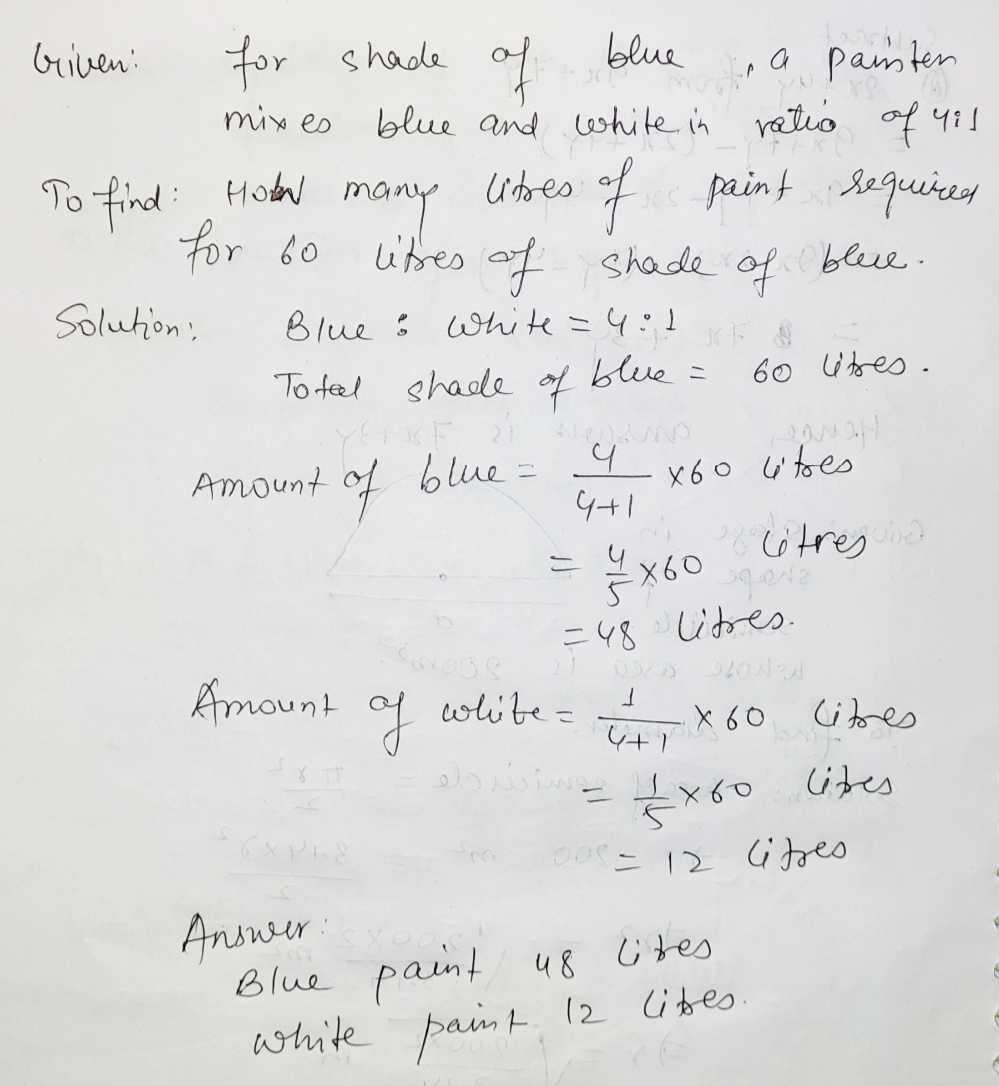 Given: for shade of blue, a painter
mixes blue and white in ratio of 4:1
To find: How many litres of paint required
for 60 litres of shade of blue.
Solution: Blue : White = 4:1
Total shade of blue = 60 litres.
Amount of blue = 4/4+1 × 60 litres
= 4/5 × 60 litres
= 48 litres.
Amount of white = 1/4+1 × 60 litres
= 1/5 × 60 litres
= 12 litres
Answer:
Blue paint 48 litres
white paint 12 litres.